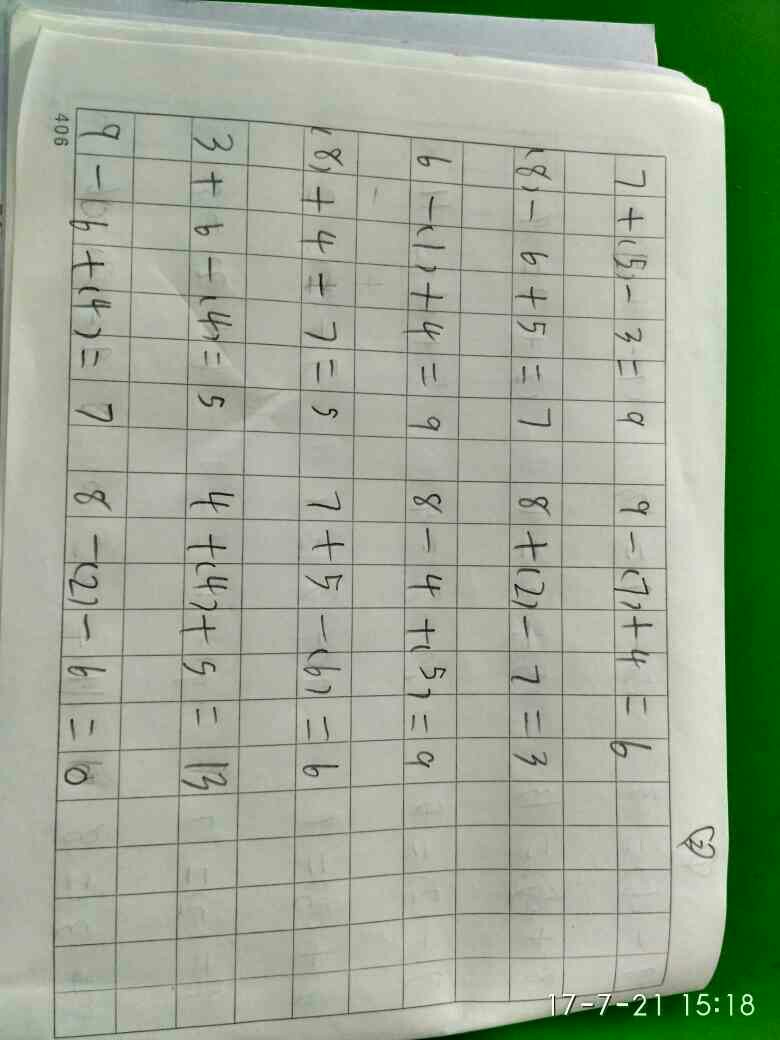 ②
7+(5)-3=9 9-(7)+4=6
(8)-6+5=7 8+(2)-7=3
6-(1)+4=9 8-4+(5)=9
(8)+4-7=5 7+5-(6)=6
3+6-(4)=5 4+(4)+5=13
9-6+(4)=7 8-(2)-6=0
406
17-7-21 15:18